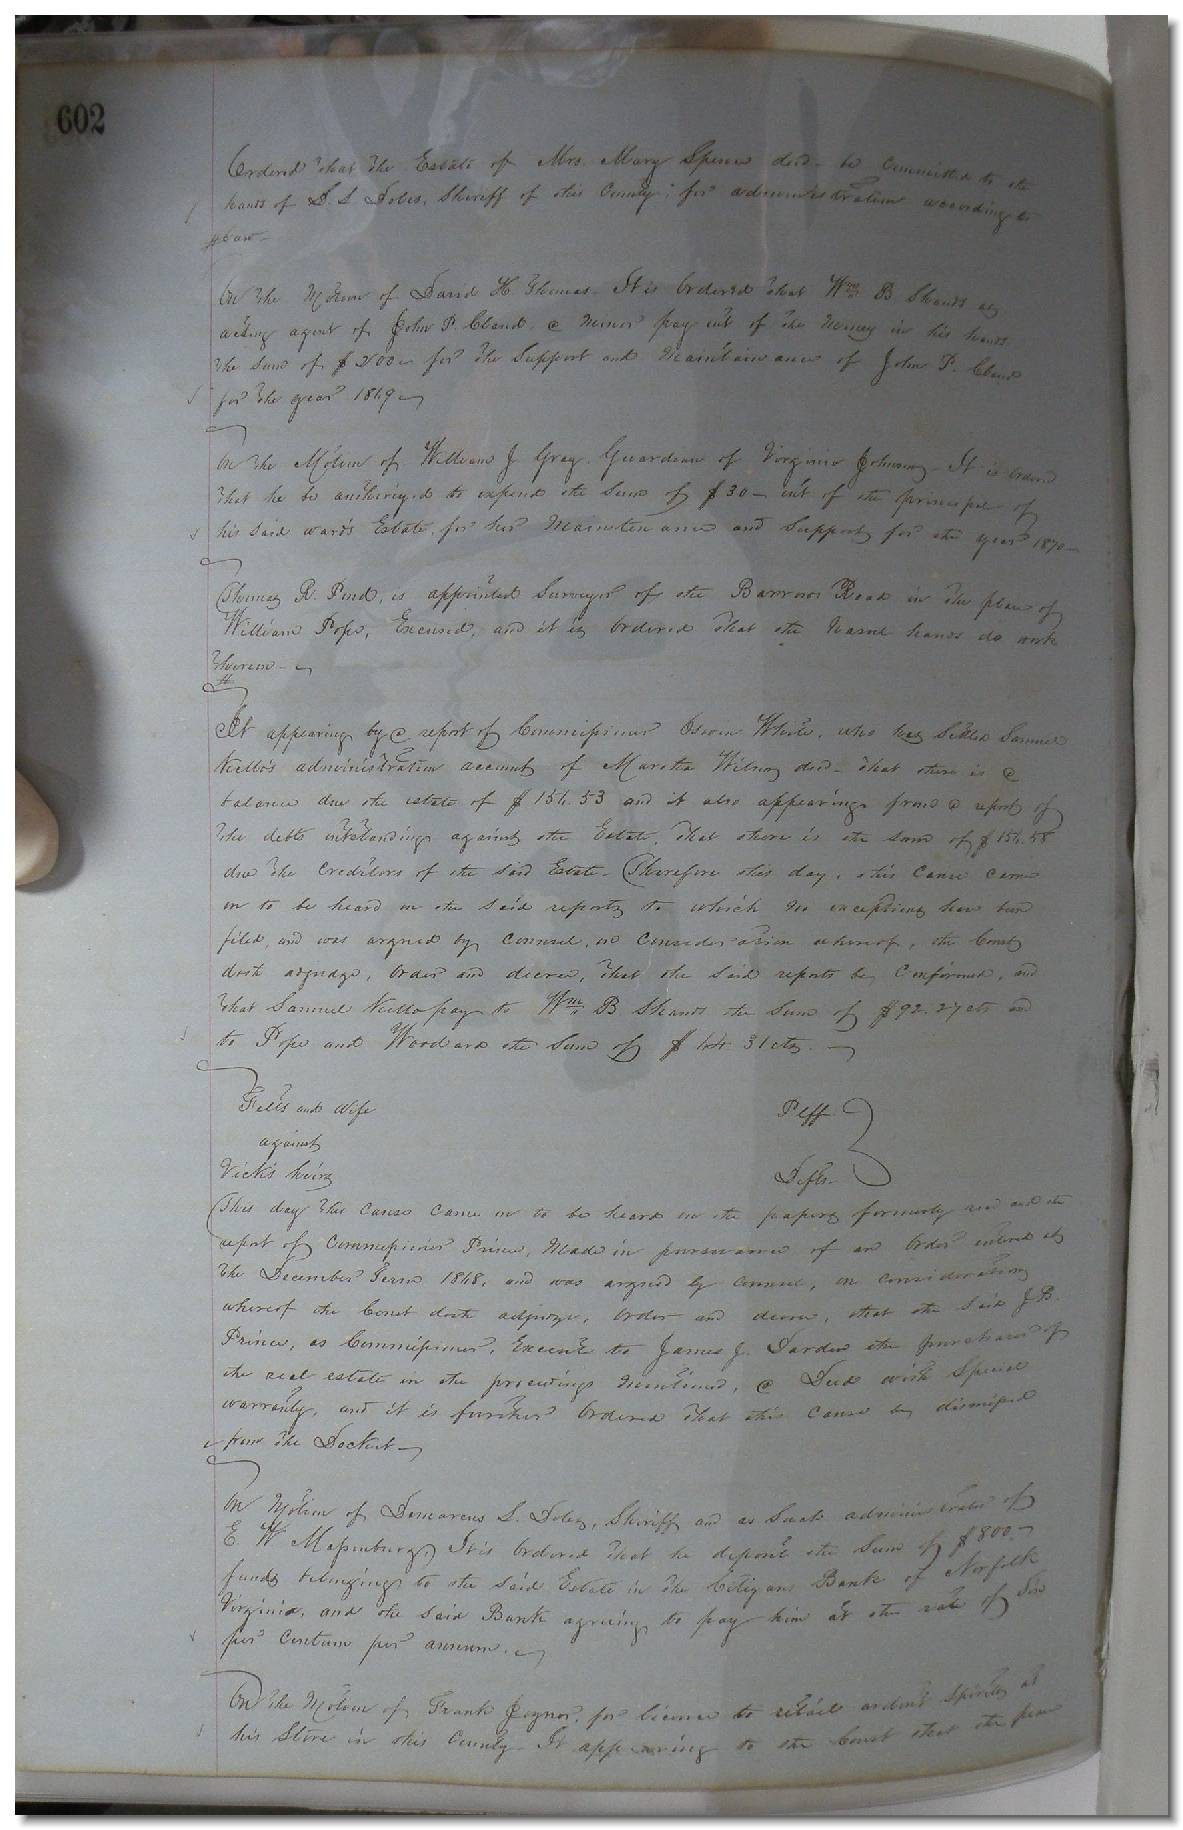 602
Ordered that the Estate of Mrs. Mary Spence decd - be committed to the
hands of D. S. Doles, Sheriff of this County, for administration according to
law -
On the Motion of David H Thomas - It is Ordered that Wm B Shands as
acting agent of John P. Claud, a Minor pay out of the Money in his hands
the sum of $200 - for the Support and Maintainance of John P. Claud
for the year 1869
On the Motion of William J Gray, Guardian of Virginia Johnson - It is Ordered
that he be authorized to expend the sum of $30 - out of the principal of
his said wards Estate, for her Maintenance and Support for the year 1870 -
Thomas R. Pond, is appointed Surveyor of the Barrows Road in the place of
William Pope, Excused, and it is Ordered that the usual hands do work
thereon -
It appearing by a report of Commissioner Edwin White, who has Settled Samuel
Kello's administration account of Martha Wilson decd - that there is a
balance due the estate of $156.53 and it also appearing from a report of
the debts outstanding against the Estate, that there is the sum of $156.58
due the Creditors of the said Estate - Therefore this day, this Cause came
on to be heard on the said reports to which no exceptions have been
filed, and was argued by Counsel, on Consideration whereof, the Court
doth adjudge, Order and decree, that the said reports be Confirmed, and
that Samuel Kello pay to Wm B Shands the Sum of $92.27 cts and
to Pope and Woodard the Sum of $64.31 cts. -
Felts and Wife Plff
against
Vick's heirs Defts.
This day this Cause came on to be heard on the papers formerly read and the
report of Commissioner Prince, Made in pursuance of an Order entered at
the December Term 1868, and was argued by Counsel, on Consideration
whereof the Court doth adjudge, Order and decree, that the said J. B.
Prince, as Commissioner, Execute to James J. Darden the purchaser of
the real estate in the proceedings Mentioned, a Deed with Special
warranty, and it is further Ordered that this Cause be dismissed
from the Docket -
On Motion of Demarcus S. Doles, Sheriff and as Such administrator of
E W Massenburg, It is Ordered that he deposit the Sum of $800 -
funds belonging to the said Estate in the Citizens Bank of Norfolk
Virginia, and the said Bank agreeing to pay him at the rate of Six
per Centum per annum.
On the Motion of Frank Joyner, for license to retail ardent Spirits at
his Store in this County It appearing to the Court that the place